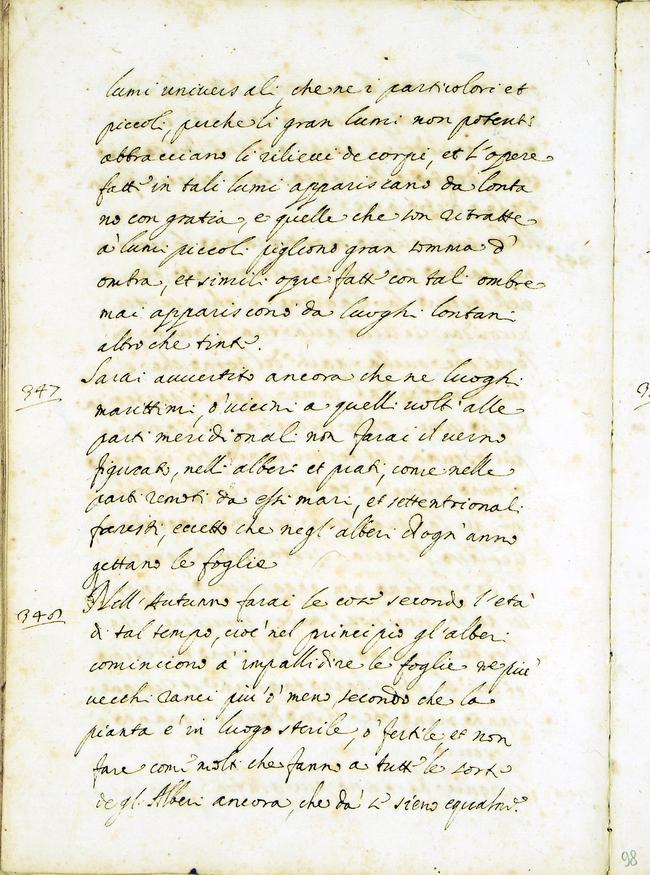 lumi universali che ne i particolori et
piccoli, perche li gran lumi non potenti
abbracciano li rilieui de corpi, et L'opere
fatte in tali lumi appariscano da lonta
no con gratia, e quelle che son ritratte
à lumi piccoli pigliono gran somma d'
ombra, et simili opre fatte con tali ombre
mai appariscono da luoghi lontani
altro che tinte.
347 Sarai auuertito ancora che ne luoghi
marittimi, ò uicini a quelli uolti alle
parti meridionali non farai il uerno
figurato, nelli alberi et prati, come nelle
parti remoti da essi mari, et settentrionali
faresti, eccetto che negl'alberi ch'ogn'anno
gettano le foglie
348 Nell'Autunno farai le cose secondo l'età
di tal tempo, cioè nel principio gl'alberi
cominciono à impallidire le foglie ne più
uecchi ranci più ò meno, secondo che la
pianta è in luogo sterile, ò fertile, et non
fare come molti che fanno a tutte le sorte
degl'Alberi ancora, che da sè sieno
98